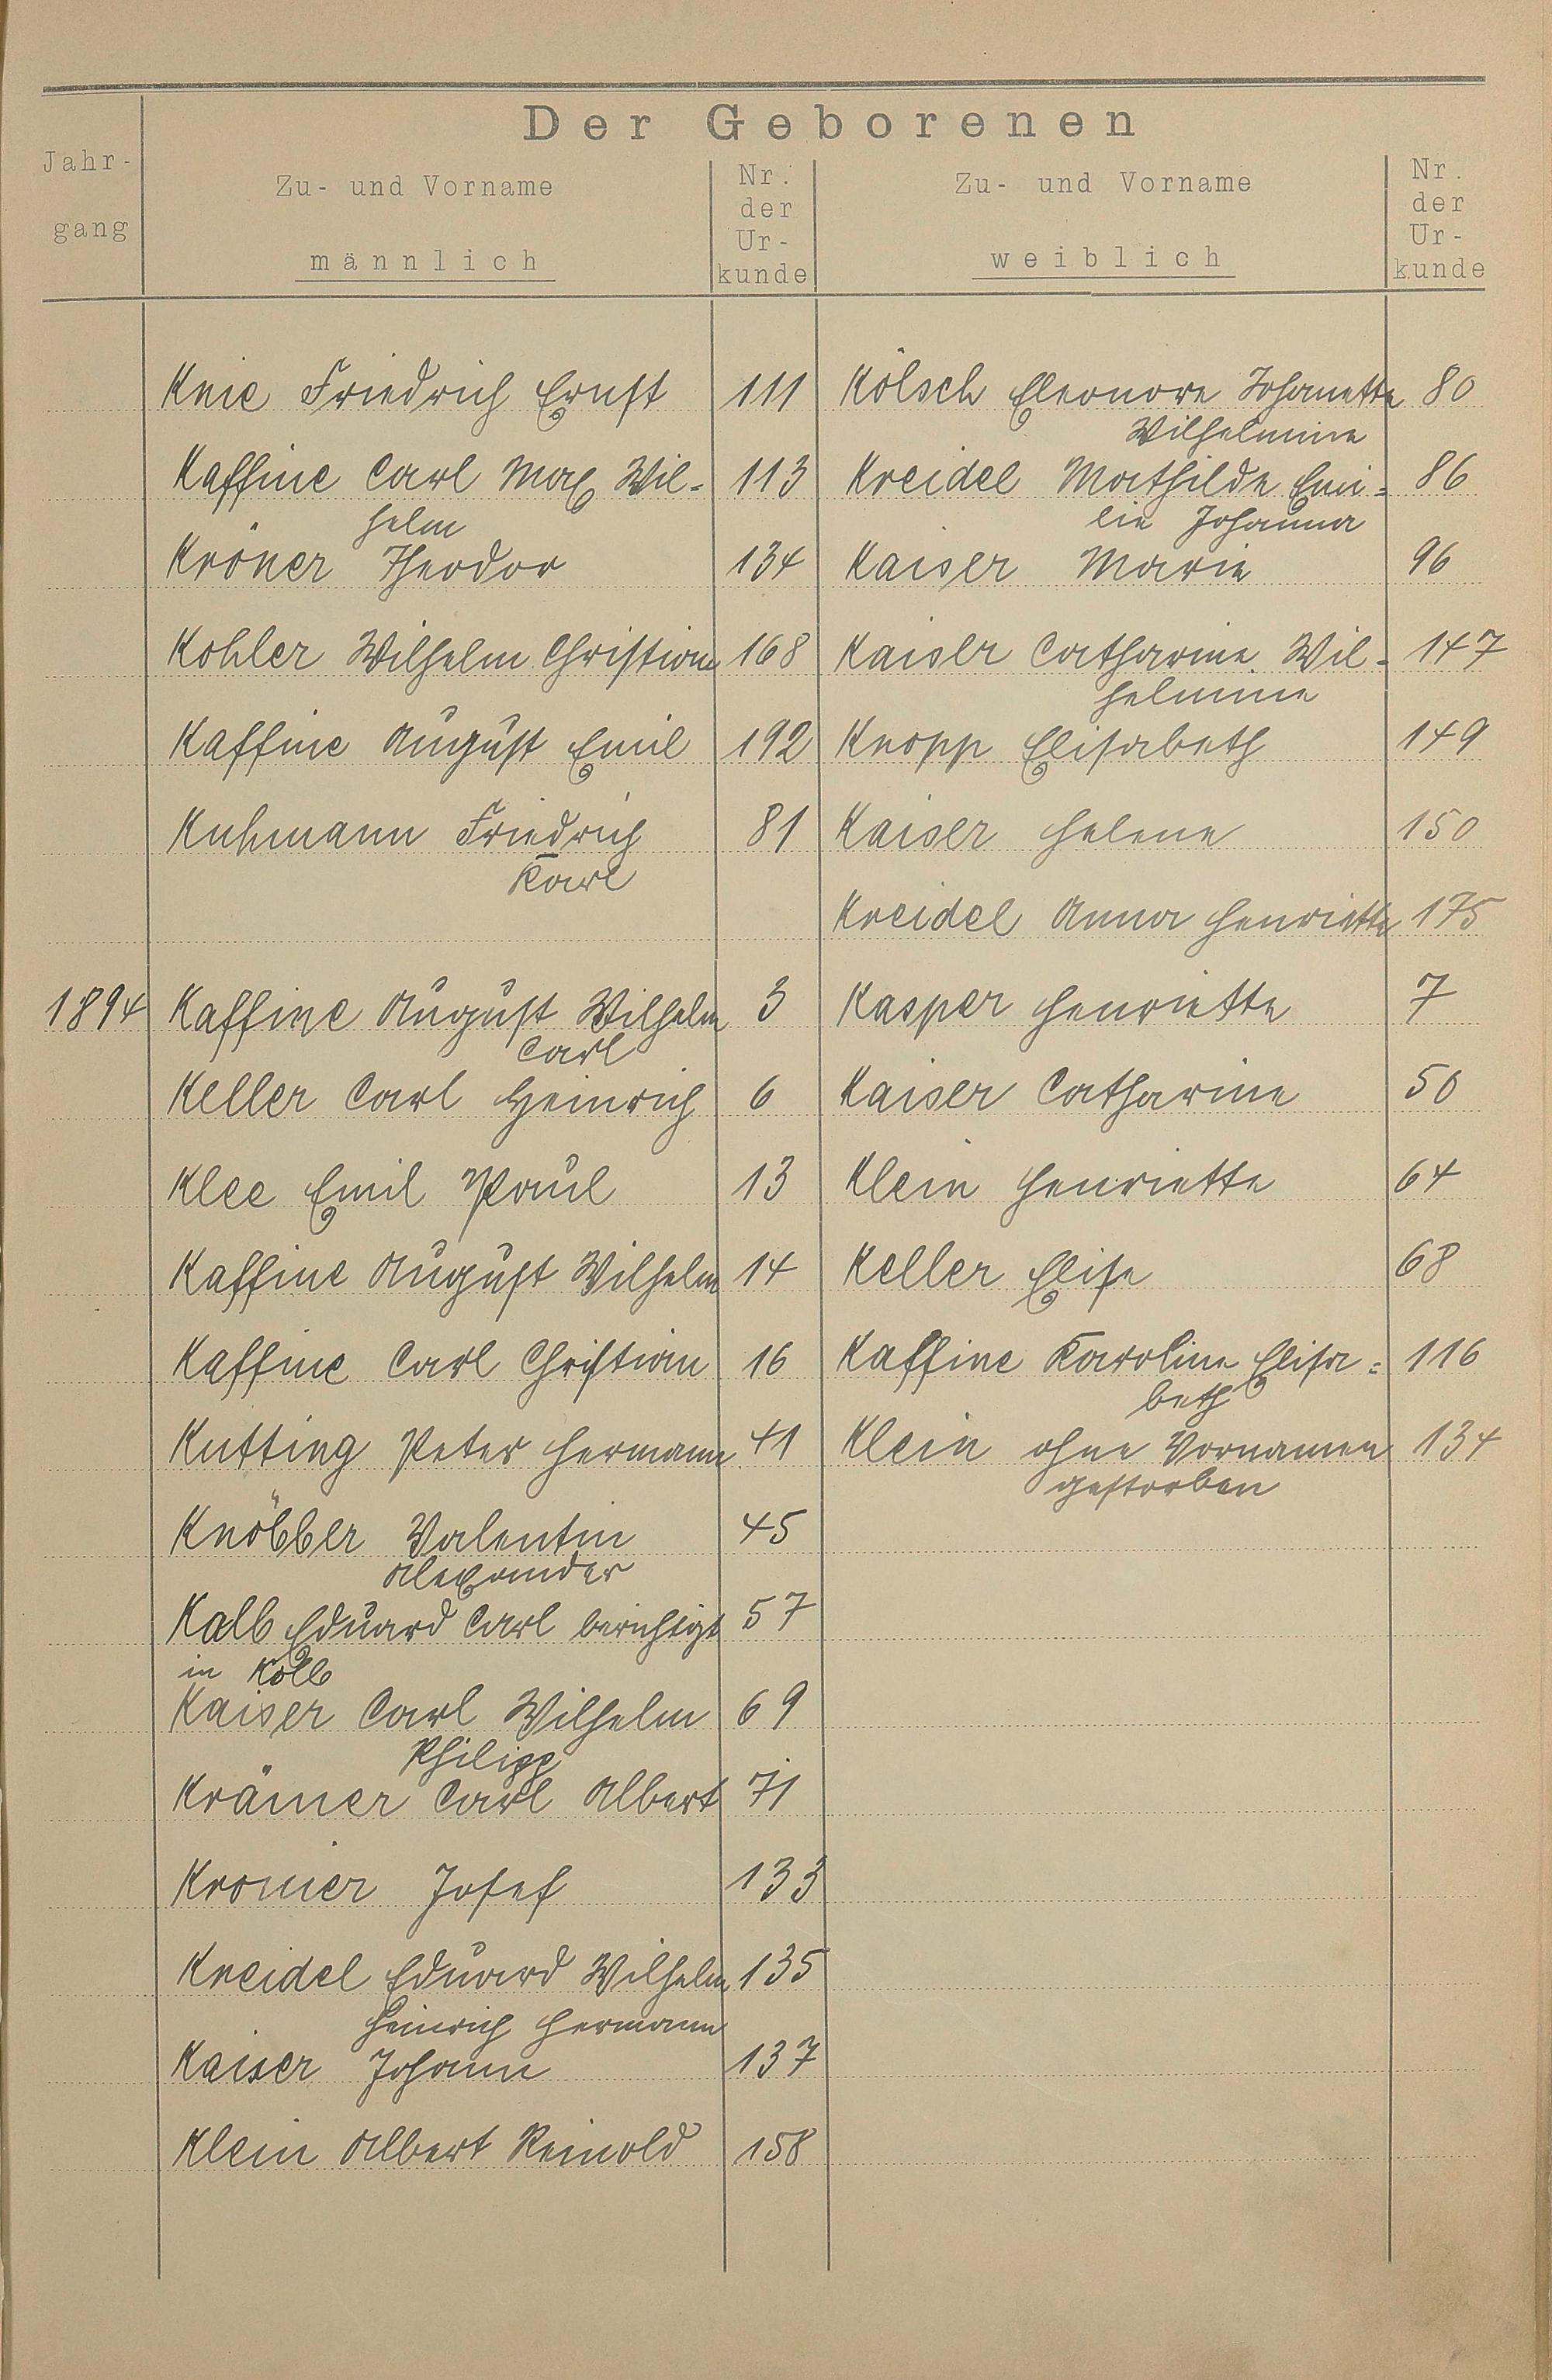 Der Geborenen
Jahr-
gang
Zu- und Vorname
männlich
Nr.
der
Ur-
kunde
Zu- und Vorname
weiblich
Nr.
der
Ur-
kunde
Knie Friedrich Ernst 111 Kölsch Eleonore Johanette 80
Wilhelmine
Kaffine Carl Max Wil- 113 Kreidel Mathilde Emi= 86
helm lie Johanna
Kröner Theodor 134 Kaiser Marie 96
Kohler Wilhelm Christian 168 Kaiser Catharine Wil- 147
helmine
Kaffine August Emil 192 Knopp Elisabeth 149
Kuhmann Friedrich 81 Kaiser Helene 150
Karl
Kreidel Anna Henriette 175
1894 Kaffine August Wilhelm 3 Kasper Henriette 7
Carl
Keller Carl Heinrich 6 Kaiser Catharine 50
Klee Emil Paul 13 Klein Henriette 64
Kaffine August Wilhelm 14 Keller Elise 68
Kaffine Carl Christian 16 Kaffine Karoline Elisa= 116
beth
Kutting Peter Hermann 41 Klein ohne Vornamen 134
gestorben
Knöbber Valentin 45
Alexander
Kalb Eduard Carl berichtigt 57
in Kolb
Kaiser Carl Wilhelm 69
Philipp
Krämer Carl Albert 71
Kromer Josef 133
Kreidel Eduard Wilhelm 135
Heinrich Hermann
Kaiser Johann 137
Klein Albert Reinold 158